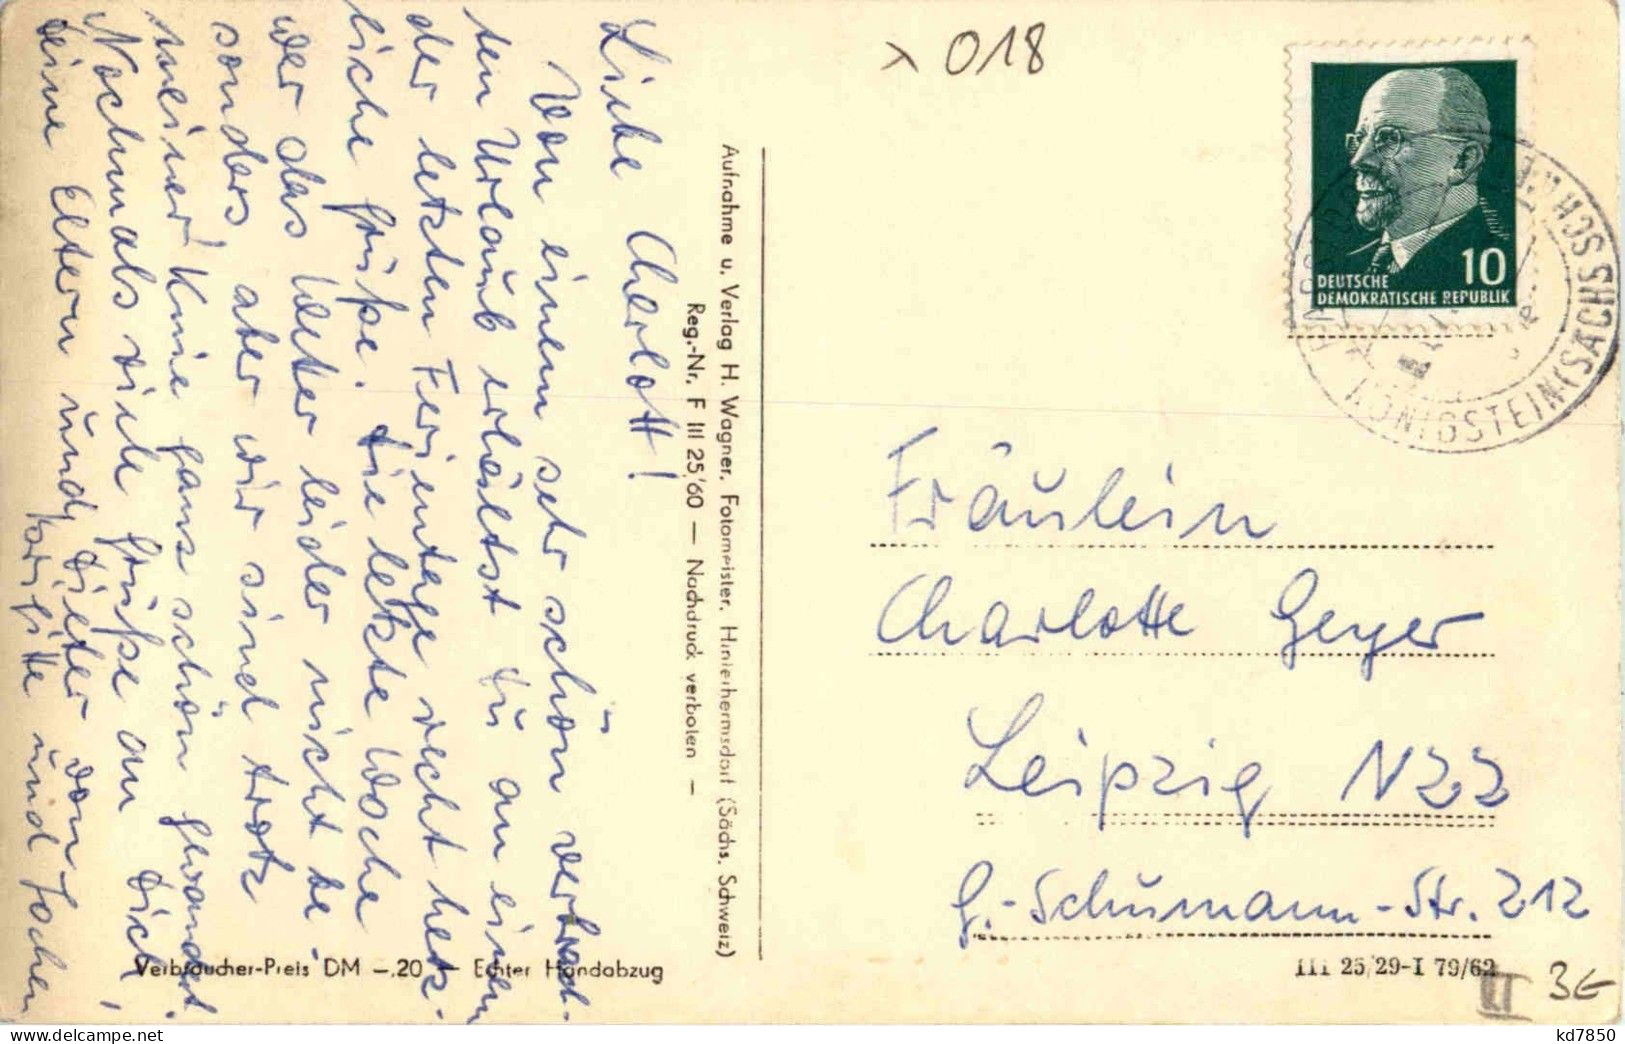 Liebe Charlott!
Von einem sehr schön verbrach-
ten Urlaub erhältst Du an einem
der letzten Ferientage recht herz-
liche Grüße. Die letzte Woche
war das Wetter leider nicht be-
sonders, aber wir sind trotz
meiner Knie ganz schön gewandert.
Nochmals viele Grüße an Dich,
Deine Eltern und Dieter von
und Jochen
Aufnahme u. Verlag H. Wagner, Fotomeister, Hinterhermsdorf (Sächs. Schweiz)
Reg.-Nr. F III 25/60 — Nachdruck verboten —
Verbraucher-Preis DM —.20 + Echter Handabzug
x 018
10
DEUTSCHE
DEMOKRATISCHE REPUBLIK
KÖNIGSTEIN (SÄCHS SCHWEIZ)
Fräulein
Charlotte Geyer
Leipzig N22
G.-Schumann-Str. 212
III 25/29-I 79/62
II 3€
kd7850